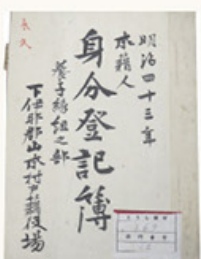 明治四十三年
本籍人
身分登記簿
養子縁組之部
下伊那郡山本村戸籍役場